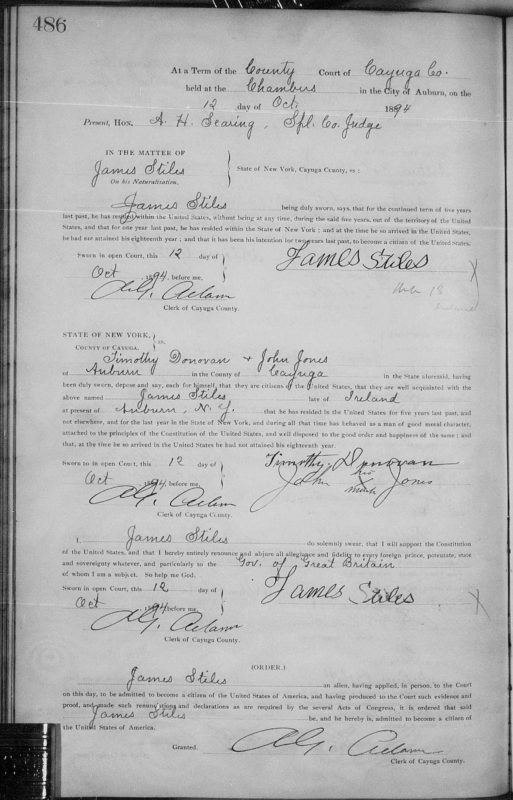 486
At a Term of the County Court of Cayuga Co.
held at the Chambers in the City of Auburn, on the
12 day of Oct. 1894
Present, HON. A. H. Searing, Spl. Co. Judge
IN THE MATTER OF
James Stiles
On his Naturalization.
State of New York, Cayuga County, ss:
James Stiles being duly sworn, says, that for the continued term of five years
last past, he has resided within the United States, without being at any time, during the said five years, out of the territory of the United
States, and that for one year last past, he has resided within the State of New York; and at the time he so arrived in the United States,
he had not attained his eighteenth year; and that it has been his intention for two years last past, to become a citizen of the United States.
Sworn in open Court, this 12 day of
Oct 1894, before me,
James Stiles
Clerk of Cayuga County.
STATE OF NEW YORK,
COUNTY OF CAYUGA. ss.
Timothy Donovan & John Jones
of Auburn in the County of Cayuga in the State aforesaid, having
been duly sworn, depose and say, each for himself, that they are citizens of the United States, that they are well acquainted with the
above named James Stiles late of Ireland
at present of Auburn, N.Y. that he has resided in the United States for five years last past, and
not elsewhere, and for the last year in the State of New York, and during all that time has behaved as a man of good moral character,
attached to the principles of the Constitution of the United States, and well disposed to the good order and happiness of the same; and
that, at the time he so arrived in the United States he had not attained his eighteenth year.
Sworn to in open Court, this 12 day of
Oct 1894, before me,
Timothy Donovan
his
John X Jones
mark
Clerk of Cayuga County.
I, James Stiles do solemnly swear, that I will support the Constitution
of the United States, and that I hereby entirely renounce and abjure all allegiance and fidelity to every foreign prince, potentate, state
and sovereignty whatever, and particularly to the Gov. of Great Britain
of whom I am a subject. So help me God.
Sworn in open Court, this 12 day of
Oct 1894, before me.
James Stiles
Clerk of Cayuga County.
(ORDER.)
James Stiles an alien, having applied, in person, to the Court
on this day, to be admitted to become a citizen of the United States of America, and having produced to the Court such evidence and
proof, and made such renunciations and declarations as are required by the several Acts of Congress, it is ordered that said
James Stiles be, and he hereby is, admitted to become a citizen of
the United States of America.
Granted.
Clerk of Cayuga County.